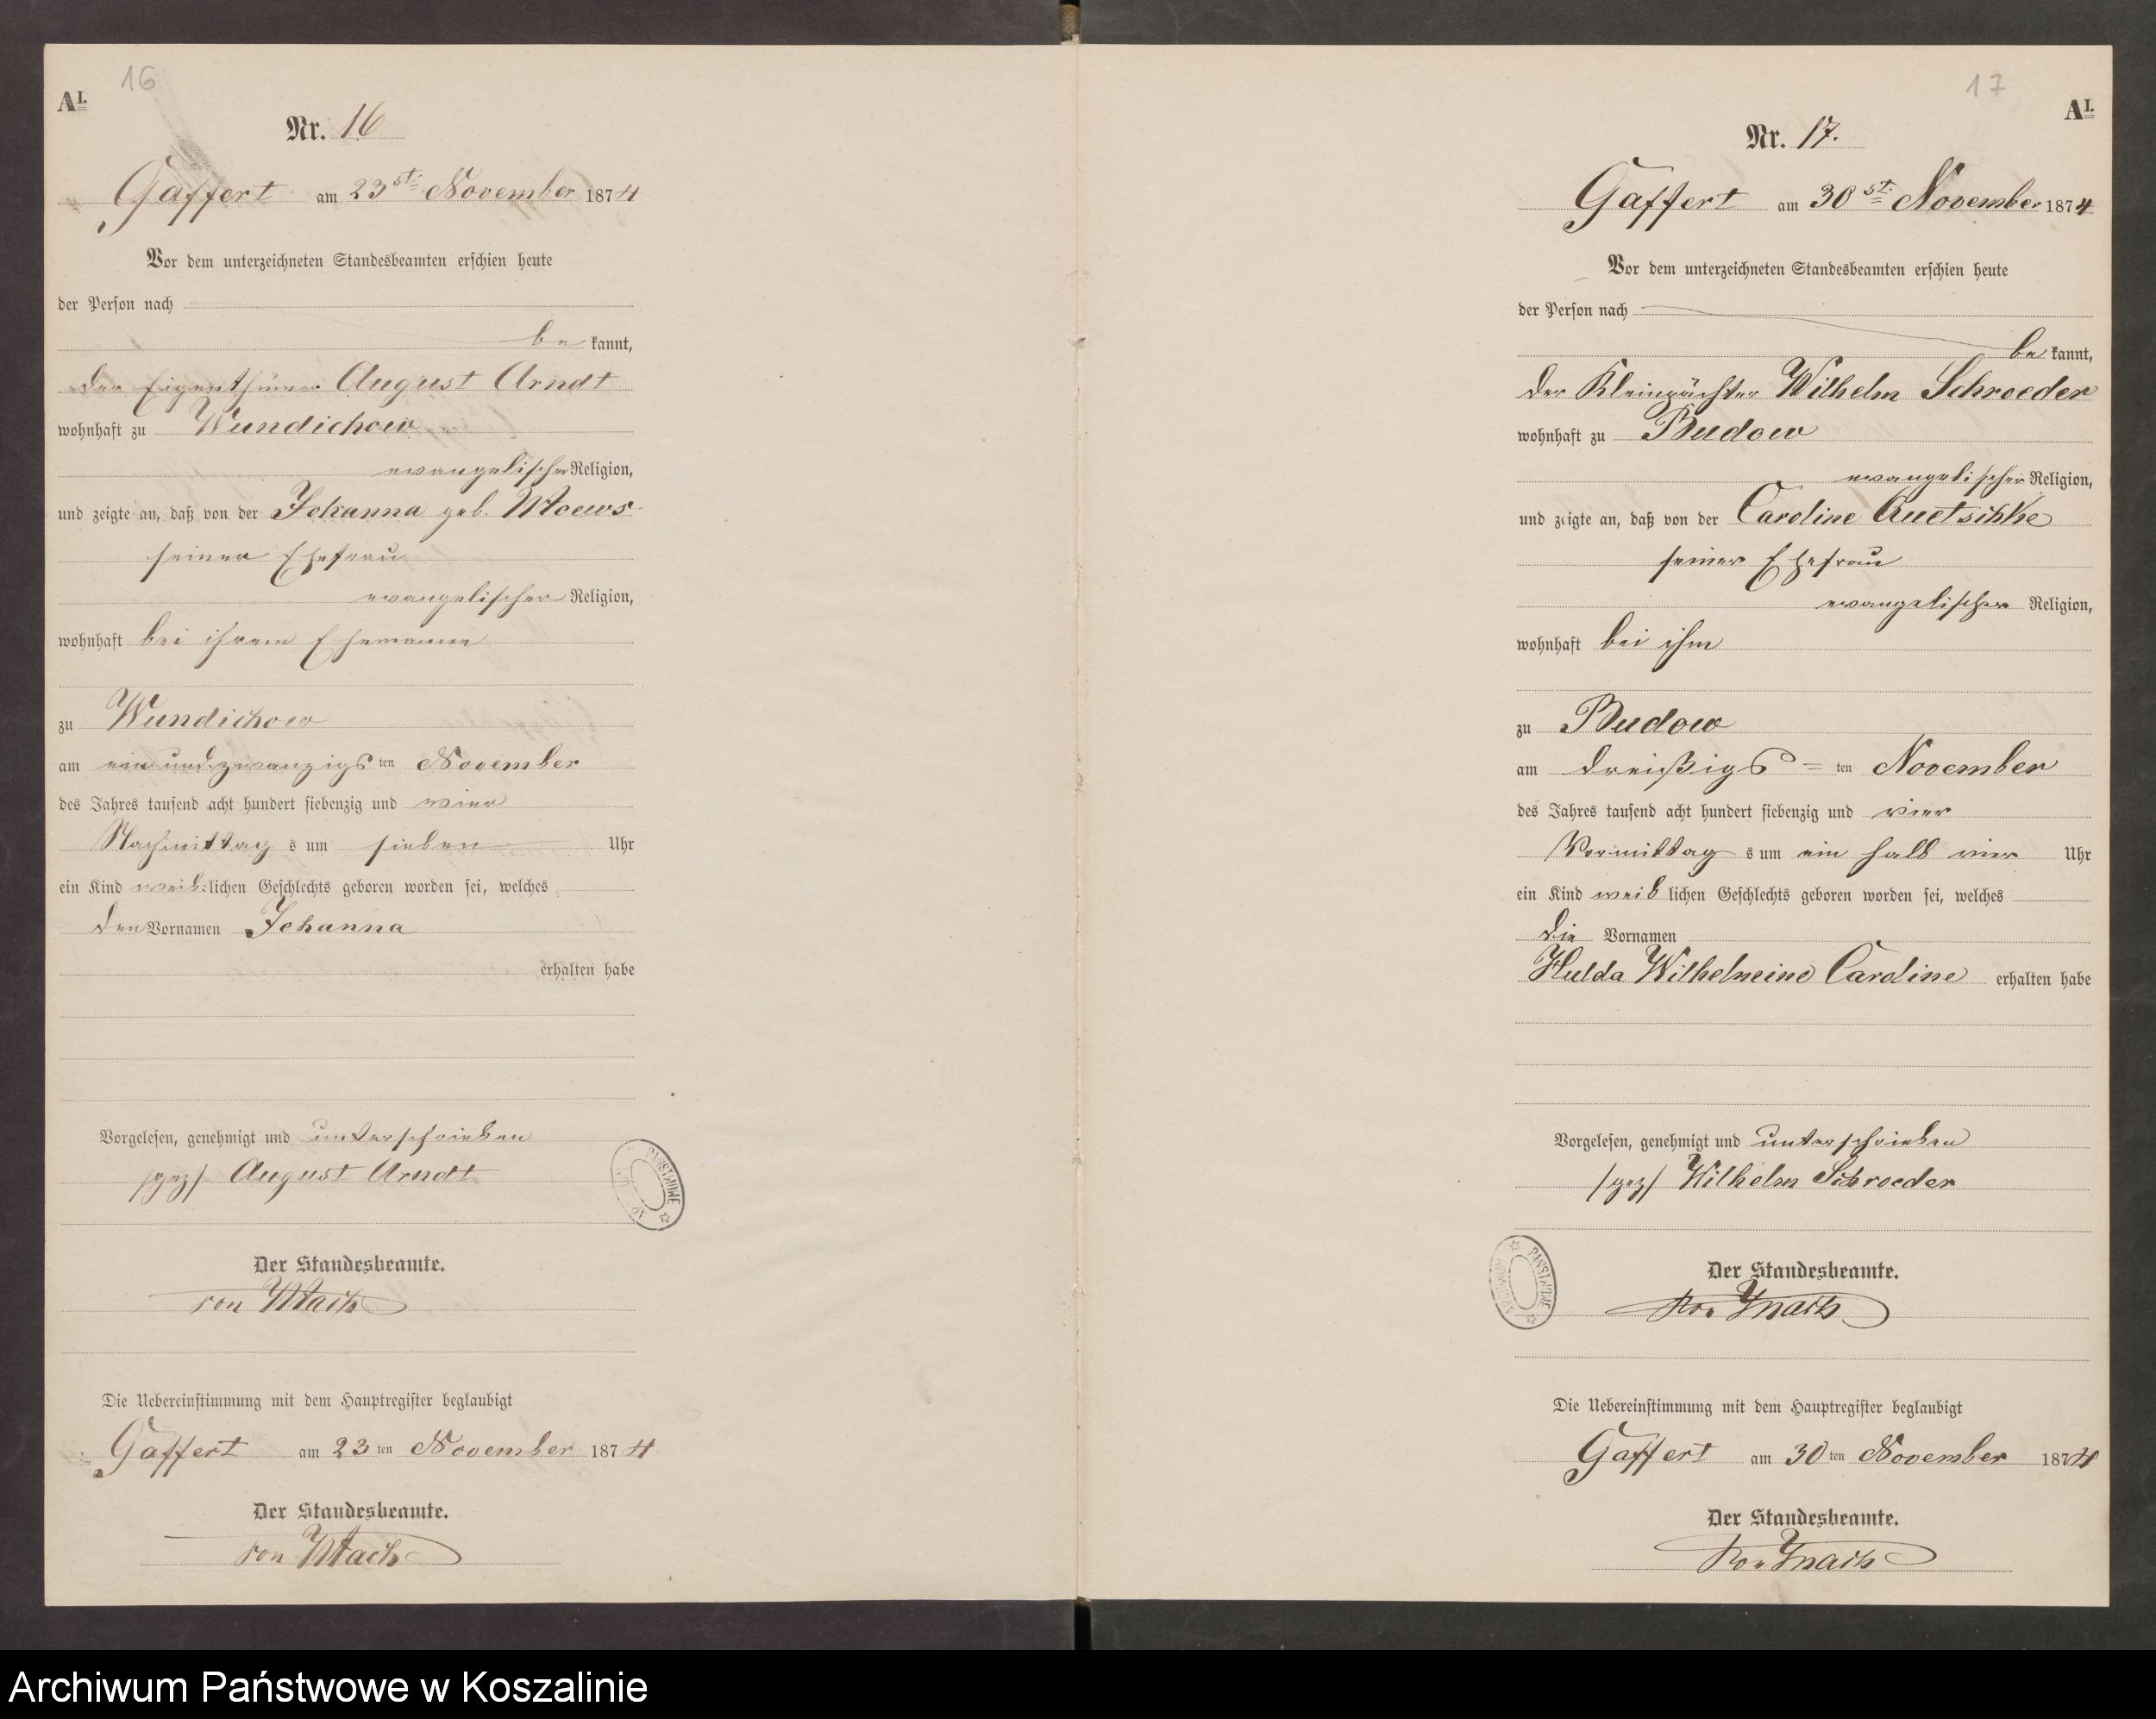 16
A I.
Nr. 16
Gaffert am 23st. November 1874
Vor dem unterzeichneten Standesbeamten erschien heute
der Person nach
be kannt,
der Eigenthümer August Arndt
wohnhaft zu Wundichow
evangelischer Religion,
und zeigte an, daß von der Johanna geb. Moews
seiner Ehefrau
evangelischer Religion,
wohnhaft bei ihrem Ehemanne
zu Wundichow
am ein und zwanzigs ten November
des Jahres tausend acht hundert siebenzig und vier
Nachmittag s um sieben Uhr
ein Kind weib lichen Geschlechts geboren worden sei, welches
den Vornamen Johanna
erhalten habe
Vorgelesen, genehmigt und unterschrieben
/gez/ August Arndt
Der Standesbeamte.
von Mach
Die Uebereinstimmung mit dem Hauptregister beglaubigt
Gaffert am 23 ten November 1874
Der Standesbeamte.
von Mach
17
A I.
Nr. 17.
Gaffert am 30st. November 1874
Vor dem unterzeichneten Standesbeamten erschien heute
der Person nach
be kannt,
der Kleinpächter Wilhelm Schroeder
wohnhaft zu Budow
evangelischer Religion,
und zeigte an, daß von der Caroline
seiner Ehefrau
evangelischer Religion,
wohnhaft bei ihm
zu Budow
am dreißigs = ten November
des Jahres tausend acht hundert siebenzig und vier
Vormittag s um ein halb vier Uhr
ein Kind weib lichen Geschlechts geboren worden sei, welches
die Vornamen
Hulda Wilhelmeine Caroline erhalten habe
Vorgelesen, genehmigt und unterschrieben
/gez/ Wilhelm Schroeder
Der Standesbeamte.
von Mach
Die Uebereinstimmung mit dem Hauptregister beglaubigt
Gaffert am 30 ten November 1874
Der Standesbeamte.
von Mach
Archiwum Państwowe w Koszalinie